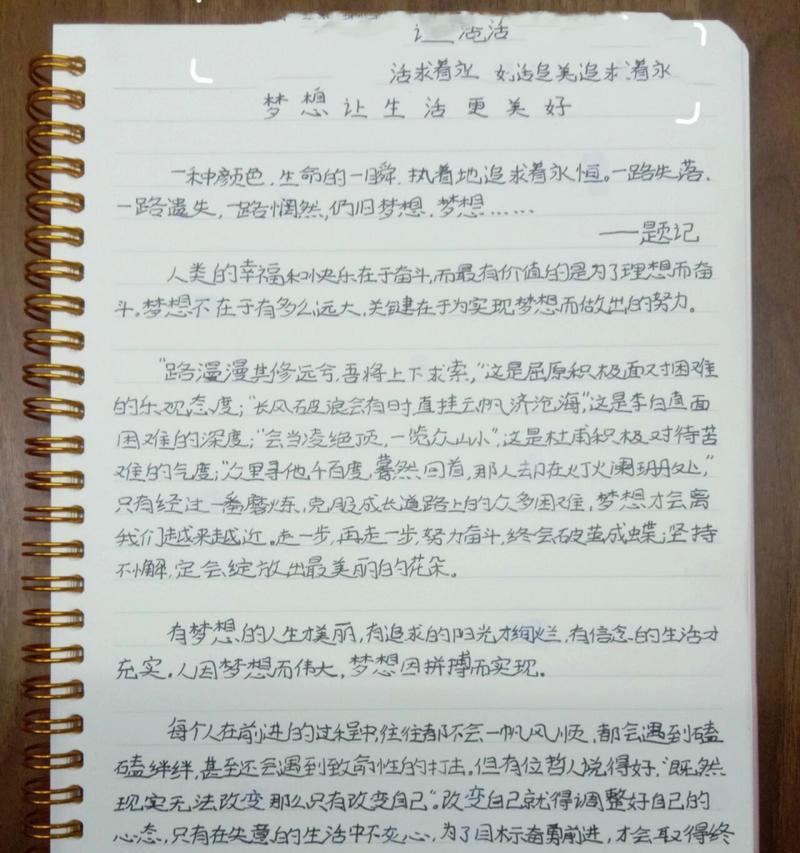 活
活求着永 好活追美追求着永
梦想让生活更美好
一种颜色，生命的一瞬，执着地追求着永恒。一路失落，
一路遗失，一路惆然，仍旧梦想，梦想……
——题记
人类的幸福和快乐在于奋斗，而最有价值的是为了理想而奋
斗。梦想不在于有多么远大，关键在于为实现梦想而做出的努力。
“路漫漫其修远兮，吾将上下求索，”这是屈原积极面对困难
的乐观态度；“长风破浪会有时，直挂云帆济沧海，”这是李白直面
困难的深度；“会当凌绝顶，一览众山小”，这是杜甫积极对待苦
难的气度；“众里寻他千百度，蓦然回首，那人却在灯火阑珊处，”
只有经过一番磨炼，克服成长道路上的众多困难，梦想才会离
我们越来越近。走一步，再走一步，努力奋斗，终会破茧成蝶；坚持
不懈，定会绽放出最美丽的花朵。
有梦想的人生才美丽，有追求的阳光才绚烂，有信念的生活才
充实。人因梦想而伟大，梦想因拼搏而实现。
每个人在前进的过程中，往往都不会一帆风顺，都会遇到磕
磕绊绊，甚至还会遇到致命性的打击。但有位哲人说得好，“既然
现实无法改变，那么只有改变自己”。改变自己就得调整好自己的
心态，只有在失意的生活中不灰心，为了目标奋勇前进，才会取得终